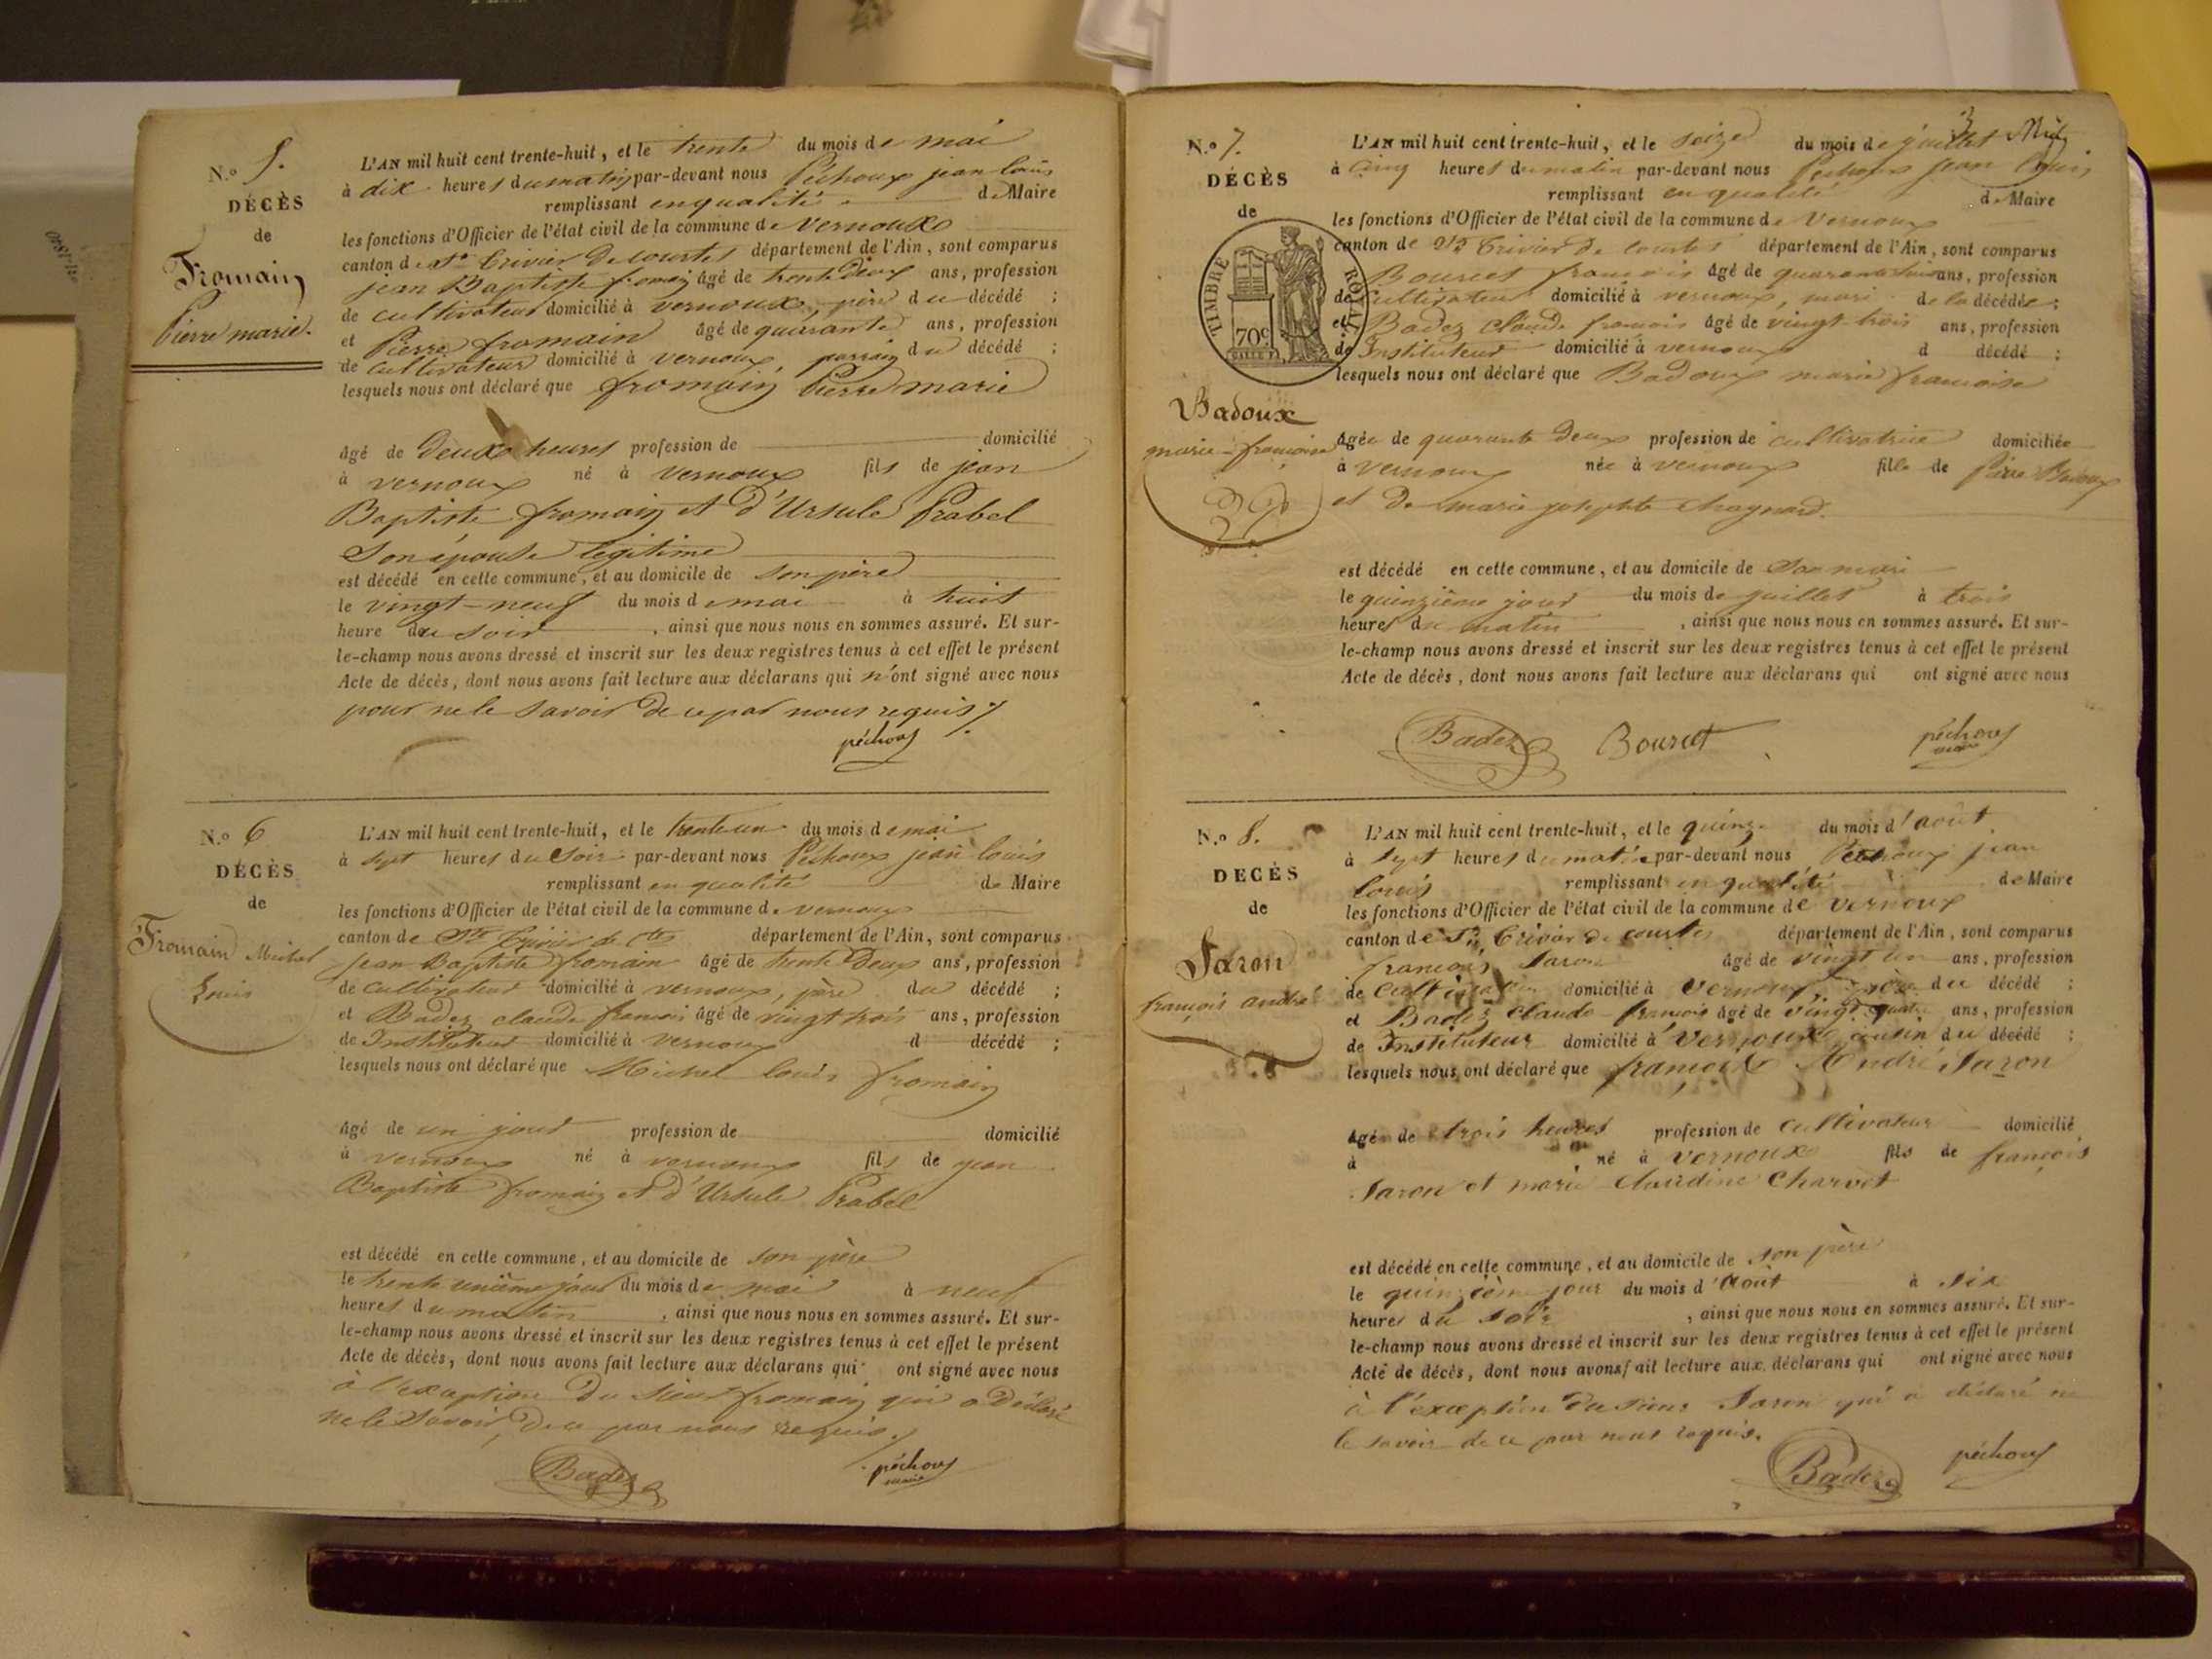 N.º 5.
DÉCÈS
de
Fromain
Pierre marie.
L'AN mil huit cent trente-huit, et le trente du mois de mai
à dix heures du matin par-devant nous Péchoux jean louis
remplissant en qualité de Maire
les fonctions d'Officier de l'état civil de la commune de Vernoux
canton de St Trivier de courtes département de l'Ain, sont comparus
jean Baptiste fromain âgé de trente deux ans, profession
de cultivateur domicilié à vernoux, père du décédé ;
et Pierre fromain âgé de quarante ans, profession
de cultivateur domicilié à vernoux, parrain du décédé ;
lesquels nous ont déclaré que fromain Pierre marie
âgé de deux heures profession de domicilié
à vernoux né à vernoux fils de jean
Baptiste fromain et d'Ursule Prabel
Son épouse légitime
est décédé en cette commune, et au domicile de son père
le vingt-neuf du mois de mai à huit
heure du soir, ainsi que nous nous en sommes assuré. Et sur-
le-champ nous avons dressé et inscrit sur les deux registres tenus à cet effet le présent
Acte de décès, dont nous avons fait lecture aux déclarans qui n'ont signé avec nous
pour ne le savoir de ce par nous requis
péchoux
N.º 6
DÉCÈS
de
Fromain Michel
Louis
L'AN mil huit cent trente-huit, et le trente un du mois de mai
à sept heures du soir par-devant nous Péchoux jean louis
remplissant en qualité de Maire
les fonctions d'Officier de l'état civil de la commune de vernoux
canton de St Trivier de Ctes département de l'Ain, sont comparus
jean Baptiste fromain âgé de trente deux ans, profession
de cultivateur domicilié à vernoux, père du décédé ;
et Badez claude francois âgé de vingt trois ans, profession
de Instituteur domicilié à vernoux d décédé ;
lesquels nous ont déclaré que Michel louis fromain
âgé de un jour profession de domicilié
à vernoux né à vernoux fils de jean
Baptiste fromain et d'Ursule Prabel
est décédé en cette commune, et au domicile de son père
le trente unième jour du mois de mai à neuf
heures du matin, ainsi que nous nous en sommes assuré. Et sur-
le-champ nous avons dressé et inscrit sur les deux registres tenus à cet effet le présent
Acte de décès, dont nous avons fait lecture aux déclarans qui ont signé avec nous
à l'exception du sieur fromain qui a déclaré
ne le savoir, de ce par nous requis.
Badez péchoux
maire
N.º 7.
DÉCÈS
de
TIMBRE ROYAL
70c
Badoux
marie-françoise
L'AN mil huit cent trente-huit, et le seize du mois de juillet
à cinq heures du matin par-devant nous Péchoux jean louis
remplissant en qualité de Maire
les fonctions d'Officier de l'état civil de la commune de Vernoux
canton de St Trivier de courtes département de l'Ain, sont comparus
Bourcet françois âgé de quarante ans, profession
de Cultivateur domicilié à vernoux, mari de la décédée ;
et Badez claude francois âgé de vingt trois ans, profession
de Instituteur domicilié à vernoux d décédé ;
lesquels nous ont déclaré que Badoux marie francoise
âgée de quarante deux profession de cultivatrice domiciliée
à vernoux née à vernoux fille de Pierre Badoux
et de marie josephte Chagnard.
est décédé en cette commune, et au domicile de son mari
le quinzième jour du mois de juillet à trois
heures du matin, ainsi que nous nous en sommes assuré. Et sur-
le-champ nous avons dressé et inscrit sur les deux registres tenus à cet effet le présent
Acte de décès, dont nous avons fait lecture aux déclarans qui ont signé avec nous
Badez Bourcet péchoux
maire
N.º 8.
DÉCÈS
de
Jaron
françois andré
L'AN mil huit cent trente-huit, et le quinze du mois d'août
à sept heures du matin par-devant nous Péchoux jean
louis remplissant en qualité de Maire
les fonctions d'Officier de l'état civil de la commune de vernoux
canton de St Trivier de courtes département de l'Ain, sont comparus
françois Jaron âgé de vingt un ans, profession
de Cultivateur domicilié à vernoux père du décédé ;
et Badez claude françois âgé de vingt quatre ans, profession
de Instituteur domicilié à vernoux, cousin du décédé ;
lesquels nous ont déclaré que françois André Jaron
âgé de trois heures profession de cultivateur domicilié
à né à vernoux fils de françois
Jaron et marie Claudine Charvet
est décédé en cette commune, et au domicile de son père
le quinzième jour du mois d'Août à six
heures du soir, ainsi que nous nous en sommes assuré. Et sur-
le-champ nous avons dressé et inscrit sur les deux registres tenus à cet effet le présent
Acte de décès, dont nous avons fait lecture aux déclarans qui ont signé avec nous
à l'exception du sieur Jaron qui a déclaré ne
le savoir de ce par nous requis.
Badez péchoux